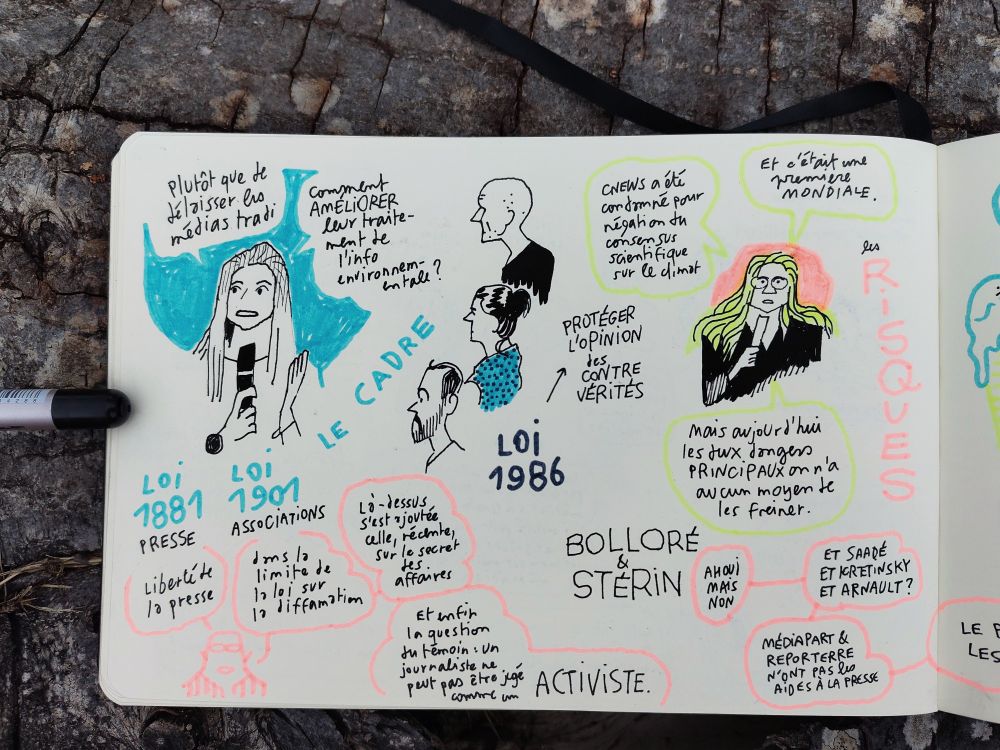 Plutôt que de
délaisser les
médias tradi
comment
AMÉLIORER
leur traite-
ment de
l'info
environnem-
entale ?
LE CADRE
LOI
1881
PRESSE
LOI
1901
ASSOCIATIONS
Liberté de
la presse
dans la
limite de
la loi sur
la diffamation
Là-dessus
s'est ajoutée
celle, récente,
sur le secret
des
affaires
Et enfin
la question
du témoin : un
journaliste ne
peut pas être jugé
comme un
ACTIVISTE.
LOI
1986
PROTÉGER
L'OPINION
des
CONTRE
VÉRITÉS
CNEWS a été
condamné pour
négation du
consensus
scientifique
sur le climat
Et c'était une
première
MONDIALE.
Mais aujourd'hui
les deux dangers
PRINCIPAUX on n'a
aucun moyen de
les freiner.
les
RISQUES
BOLLORÉ
&
STÉRIN
AH OUI
MAIS
NON
ET SAADÉ
ET KRETINSKY
ET ARNAULT ?
MÉDIAPART &
REPORTERRE
N'ONT PAS les
AIDES À LA PRESSE
LE
LES